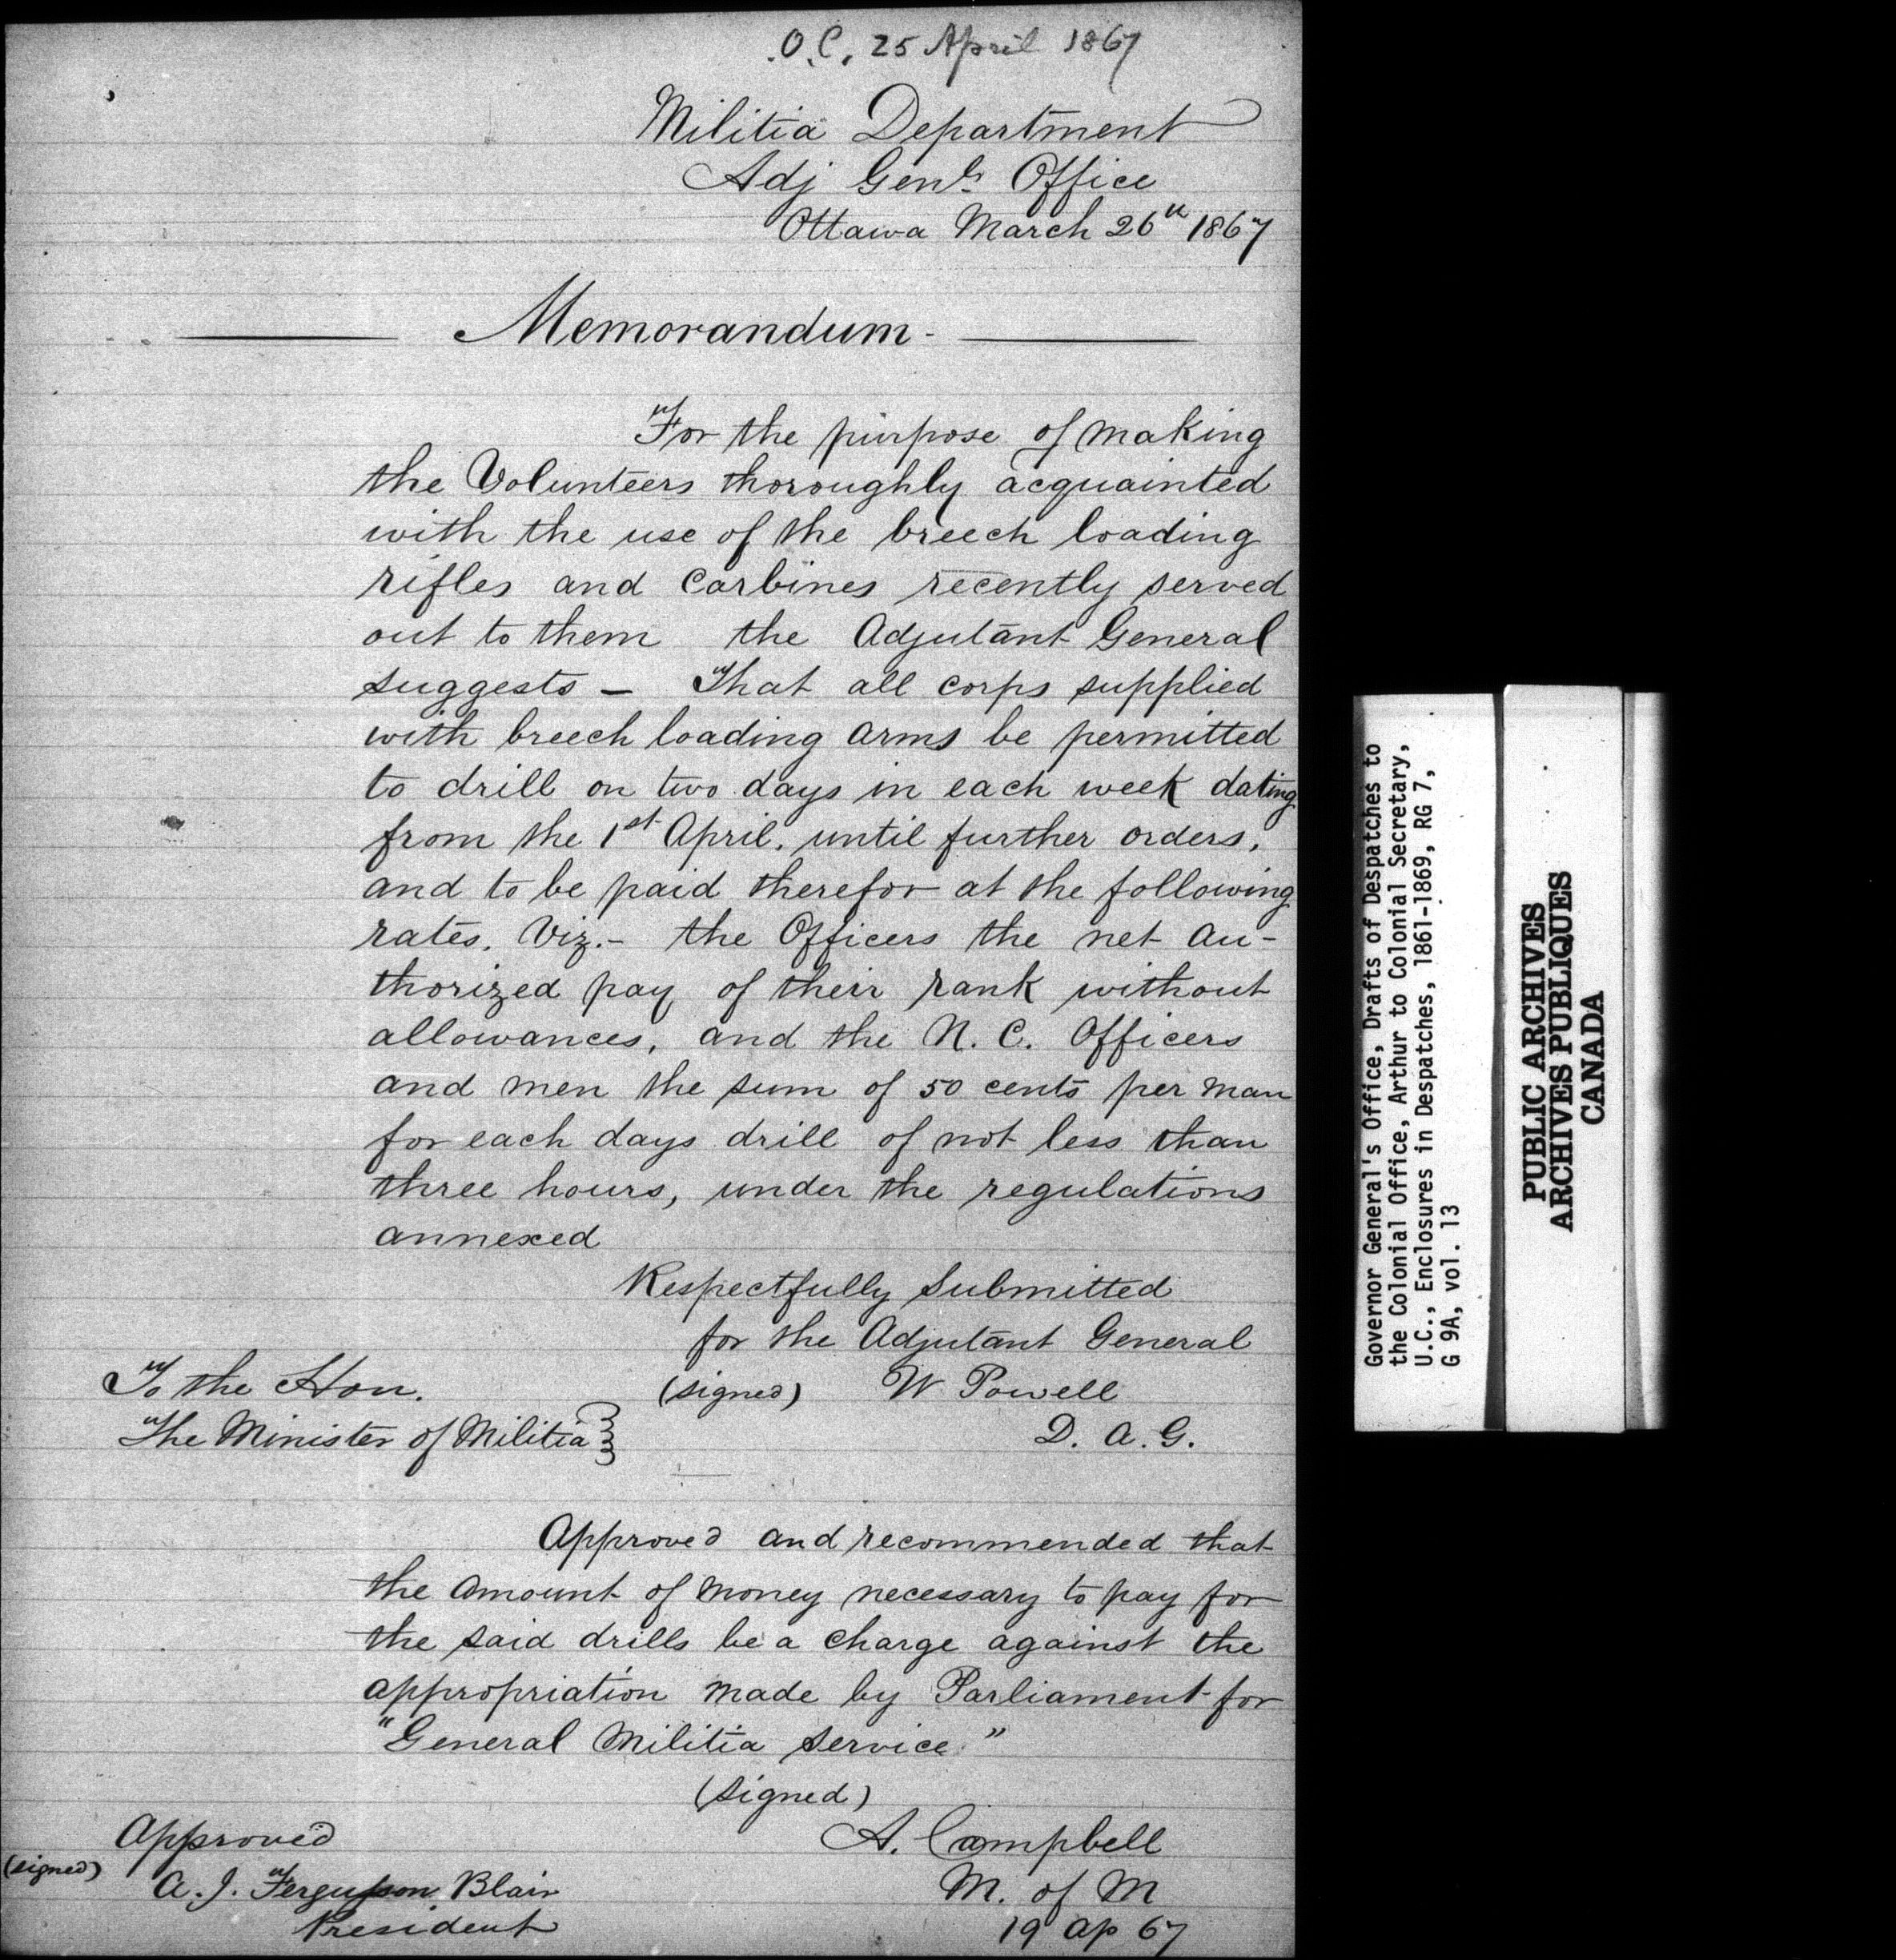 O.C. 25 April 1867
Militia Department
Adj Genls Office
Ottawa March 26th 1867
Memorandum -
For the purpose of making
the Volunteers thoroughly acquainted
with the use of the breech loading
rifles and Carbines recently served
out to them the Adjutant General
suggests – That all corps supplied
with breech loading arms be permitted
to drill on two days in each week dating
from the 1st April, until further orders,
and to be paid therefor at the following
rates, Viz.- the Officers the net au-
thorized pay of their rank without
allowances, and the N. C. Officers
and men the sum of 50 cents per man
for each days drill of not less than
three hours, under the regulations
annexed
Respectfully Submitted
for the Adjutant General
(signed) W Powell
D. A. G.
To the Hon.
The Minister of Militia
Approved and recommended that
the amount of money necessary to pay for
the said drills be a charge against the
appropriation made by Parliament for
"General Militia Service."
(signed)
A. Campbell
M. of M
19 Ap 67
Approved
(signed)
A. J. Fergusson Blair
President
Governor General's Office, Drafts of Despatches to
the Colonial Office, Arthur to Colonial Secretary,
U.C., Enclosures in Despatches, 1861-1869, RG 7,
G 9A, vol. 13
PUBLIC ARCHIVES
ARCHIVES PUBLIQUES
CANADA